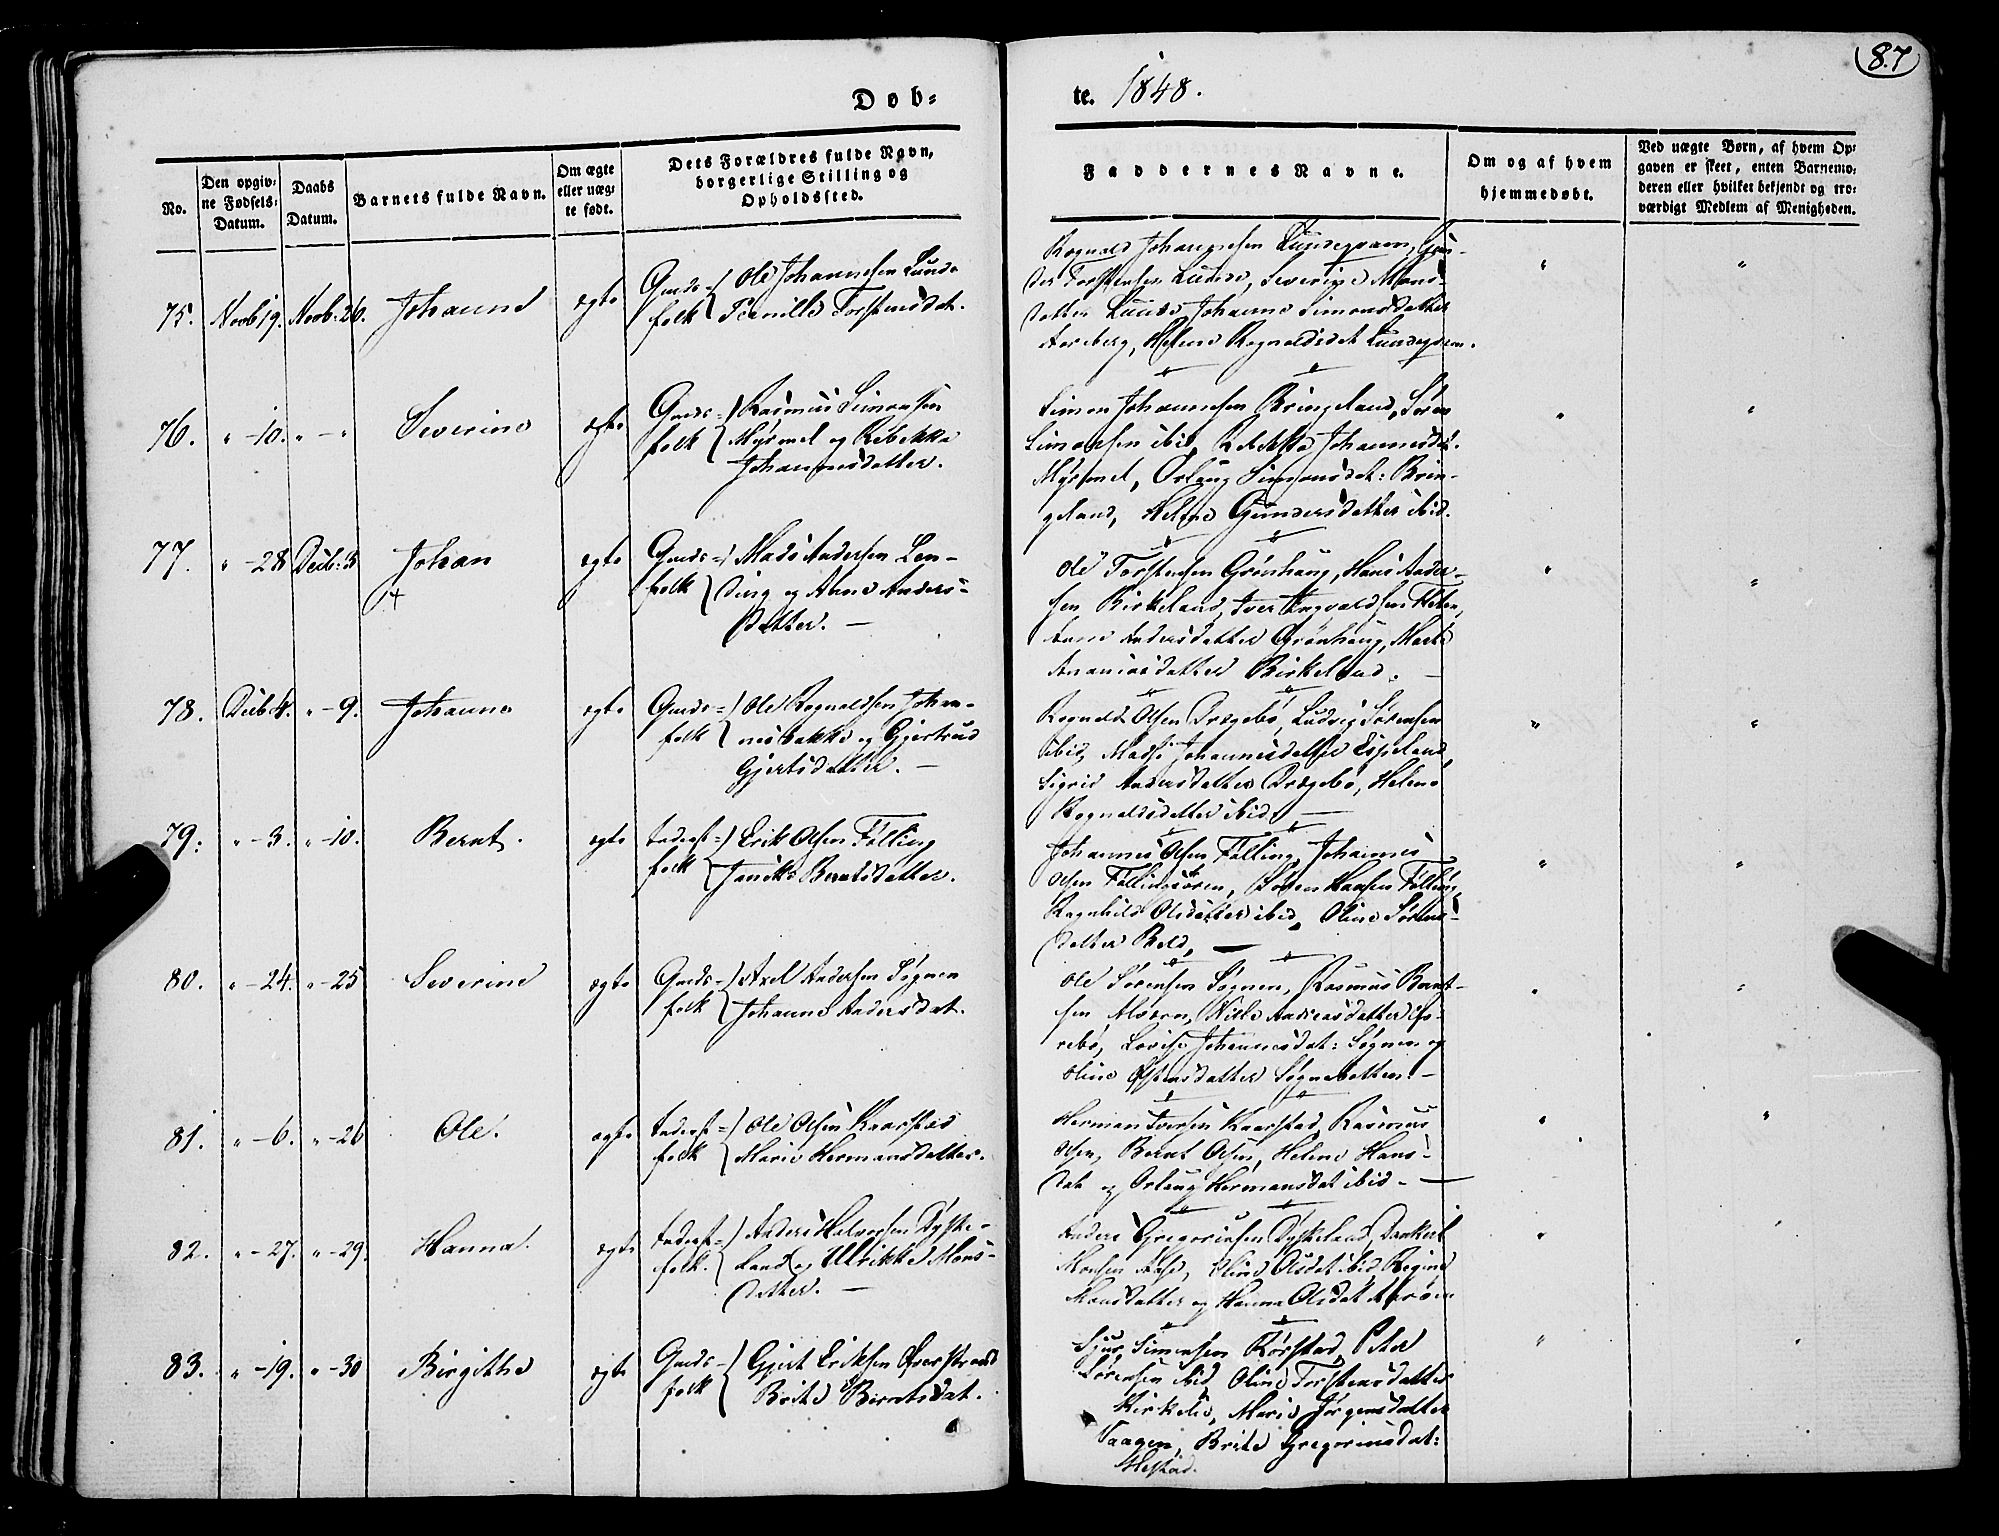 87
Døb=
te. 1848.
No.
Den opgiv=
ne Fødsels=
Datum.
Daabs
Datum.
Barnets fulde Navn.
Om ægte
eller uæg=
te født.
Dets Forældres fulde Navn,
borgerlige Stilling og
Opholdssted.
Faddernes Navne.
Om og af hvem
hjemmedøbt.
Ved uægte Børn, af hvem Op=
gaven er skeet, enten Barnemo=
deren eller hvilket bekjendt og tro=
værdigt Medlem af Menigheden.
75. Novb 19. Novb. 26. Johanne ægte Gmds= folk
Ole Johannesen Lunde
Pernille Torstensdat.
Rognald Johannesen
Torstensen Lunde, Severine Mons=
datter Lunde Johanne Simonsdatter
Aarberg, Helene Rognaldsdat
76. " -10. " - " Severine ægte Gmds= folk
Rasmus Simonsen
Myrmel og Rebekka
Johannesdatter.
Simon Johannesen Bringeland, Søren
Simonsen ibid, Rebekka Johannesdt.
Myrmel, Orlaug Simonsdat: Brin=
geland, Helene Gundersdatter ibid.
77. " -28 Decb: 3 Johan ægte Gmds= folk
+
Mads Andersen Len=
ding og Anne Anders=
datter. —
Ole Torstensen Grønhaug, Hans Ander=
sen Birkeland, Iver Ingvaldsen
Anne Andersdatter Grønhaug, Marte
Ananiasdatter Birkeland. —
78. Decb 4. " -9. Johanna ægte Gmds= folk
Ole Rognaldsen Johan=
nesbakke og Gjertrud
Gjertsdatter. —
Rognald Olsen Drægebø, Ludvig Sørensen
ibid, Madsi Johannesdatter Espeland,
Sigrid Andersdatter Drægebø, Helene
Rognaldsdatter ibid. —
79. " -3. " -10. Bernt. ægte Inderst= folk
Erik Olsen Følling
Janike Berntsdatter.
Johannes Olsen Følling, Johannes
Olsen Føllingsøren, Søren Hansen Følling,
Ragnhild Olsdatter ibid, Oline Sørens=
datter Beld, —
80. " -24. " -25 Severine ægte Gmds= folk
Axel Andersen Søgnen
Johanne Andersdat.
Ole Sørensen Søgnen, Rasmus Bernt=
sen Alværn, Nille Andreasdatter
Lovise Johannesdat: Søgnen og
Oline Østensdatter Søgnebotten. —
81. " -6. " -26 Ole. ægte Inderst= folk
Ole Olsen Kaarstad
Marie Hermansdatter.
Herman Iversen Kaarstad, Rasmus
Olsen, Bernt Olsen, Helene Hans=
dat og Orlaug Hermansdat ibid. —
82. " -27. " -29. Hanna. ægte Inderst= folk.
Anders Halvorsen Dyske=
land og Ulrikke Mons=
datter. —
Anders Gregoriusen Dyskeland, Dankert
Monsen Aase, Oline Olsdat ibid, Regine
Monsdatter og Hanna Olsdat
83. " -19. " -30 Birgithe ægte Gmds= folk
Gjert Eriksen Qvarstrand
Brite Berntsdat.
Sjur Simonsen Rørstad, Peter
Sørensen ibid, Oline Torstensdatter
Kirkelid, Marie Jørgensdatter
Vaagen, Brite Gregoriusdat:
Hestad.